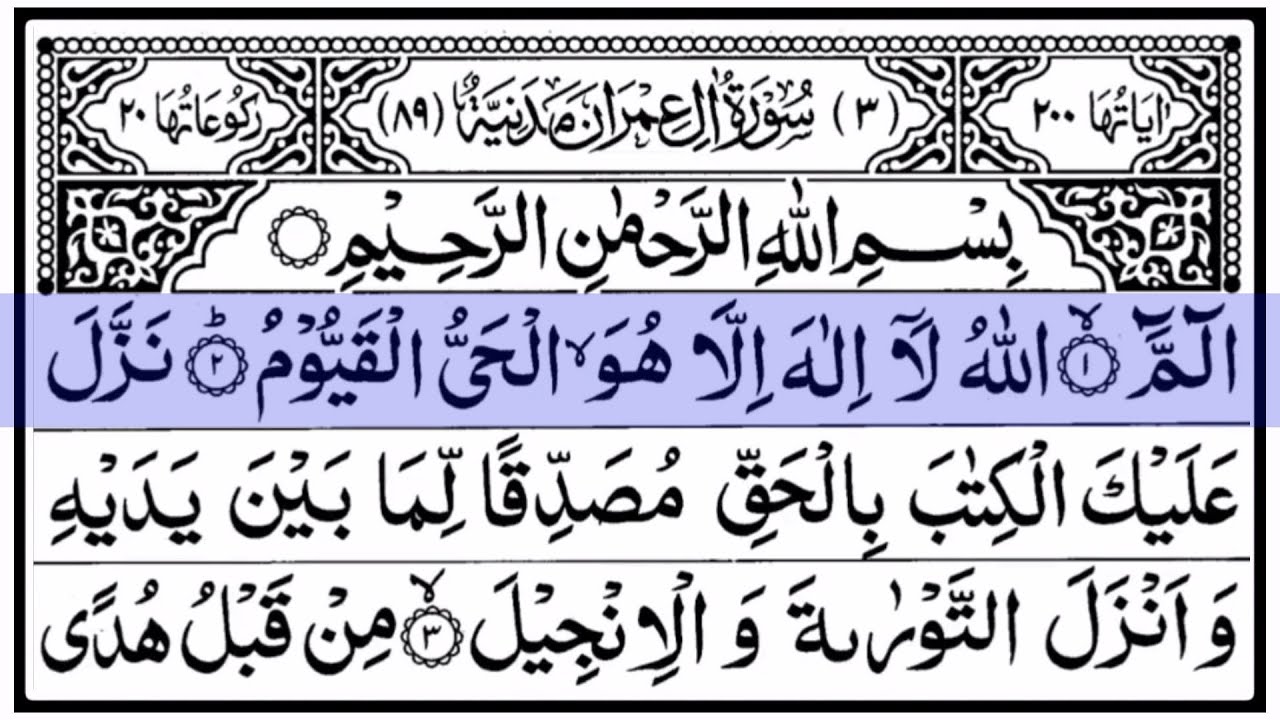 اٰيَاتُهَا ٢٠٠ (٣) سُوْرَةُ اٰلِ عِمْرَانَ مَدَنِيَّةٌ (٨٩) رُكُوْعَاتُهَا ٢٠
بِسْمِ اللّٰهِ الرَّحْمٰنِ الرَّحِيْمِ
الٓمَّٓ ۙ﴿١﴾ اللّٰهُ لَاۤ اِلٰهَ اِلَّا هُوَ ۙ الْحَىُّ الْقَيُّوْمُ ؕ﴿٢﴾ نَزَّلَ
عَلَيْكَ الْكِتٰبَ بِالْحَقِّ مُصَدِّقًا لِّمَا بَيْنَ يَدَيْهِ
وَ اَنْزَلَ التَّوْرٰىةَ وَ الْاِنْجِيْلَ ۙ﴿٣﴾ مِنْ قَبْلُ هُدًى